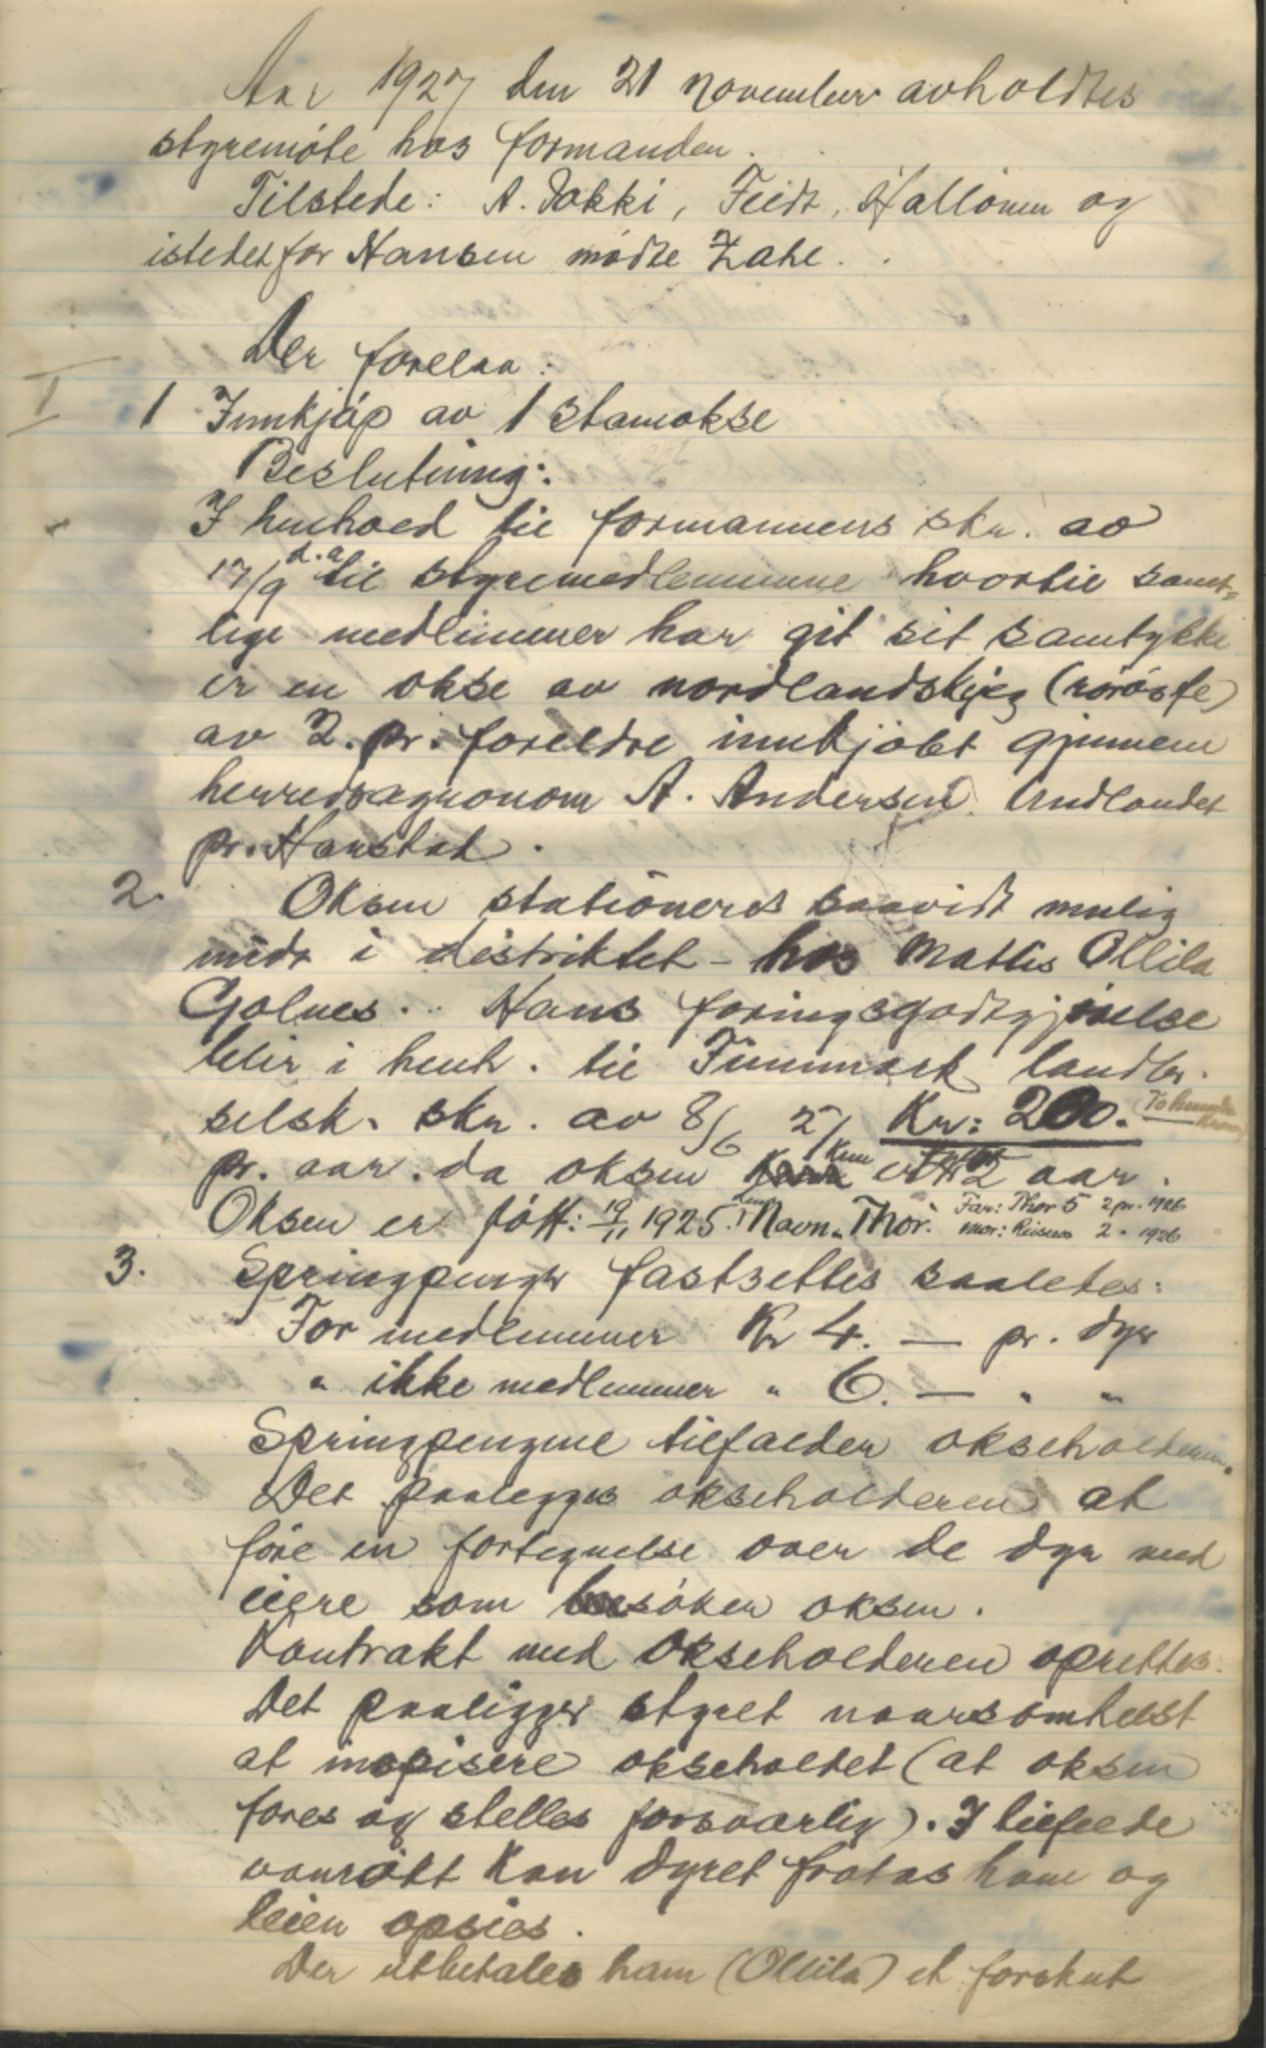 Aar 1927 den 21 november avholdtes
styremöte hos formanden.
Tilstede: A. Dokki, Feidt, Hallonen og
istedetfor Hansen mødte Zahl.
Der forelaa:
I
1 Innkjöp av 1 stamokse
Beslutning:
I henhold til formannens skr. av
17/9 d.a. til styremedlemmene hvortil samt-
lige medlemmer har git sit samtykke
er en okse av nordlandskjeg (rorösfe)
av 2. pr. foreldre innkjöbt gjennem
herredsagronom A. Andersen Andlandet
pr. Harstad.
2. Oksen stationeres saavidt mulig
midt i distriktet - hos Mattis Ollila
Golnes. Hans foringsgodtgjörelse
blir i henh. til Finnmark landbr.
selsk. skr. av 8/6 27 Kr: 200. (To hundre kroner)
pr. aar. da oksen kun er 2 aar.
Oksen er fött: 19/11 1925. Navn "Thor". Far: Thor 5 2 pr. 1926
mor: 2 " 1926
3. Springpenger fastsettes saaledes:
For medlemmer Kr 4. — pr. dyr
" ikke medlemmer " 6. — " "
Springpengene tilfalder okseholderen.
Det paalegges okseholderen at
före en fortegnelse over de dyr med
eiere som besöker oksen.
Kontrakt med okseholderen oprettes.
Det paaligger styret naarsomhelst
at inspisere okseholdet (at oksen
fores og stelles forsvarlig). I tilfelde
vanrökt kan dyret fratas ham og
leien opsies.
Der utbetales ham (Ollila) et forskut